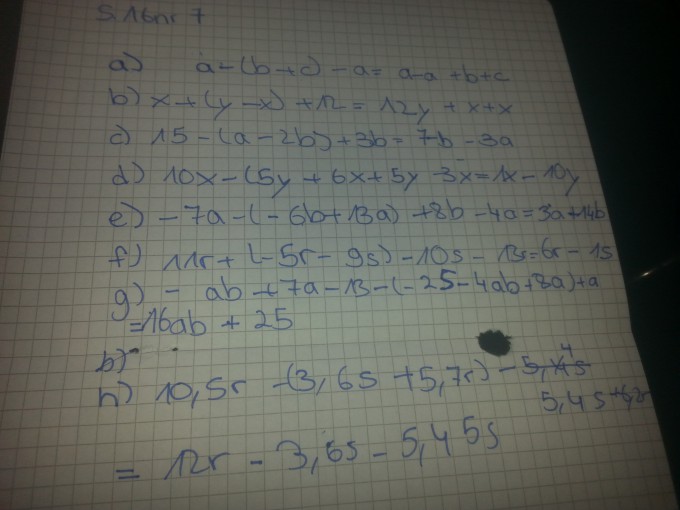 S. 16 nr 7
a) a - (b + c) - a = a - a + b + c
b) x + (y - x) + 12 = 12y + x + x
c) 15 - (a - 2b) + 3b = 7b - 3a
d) 10x - (5y + 6x + 5y 3x = 1x - 10y
e) - 7a - (- 6b + 13a) + 8b - 4a = 3a + 14b
f) 11r + (- 5r - 9s) - 10s - 13s = 6r - 1s
g) - ab + 7a - 13 - (- 25 - 4ab + 8a) + a
= 16ab + 25
b)
h) 10,5r - (3,6s + 5,7r) -
5,4s
= 12r - 3,6s - 5,45s